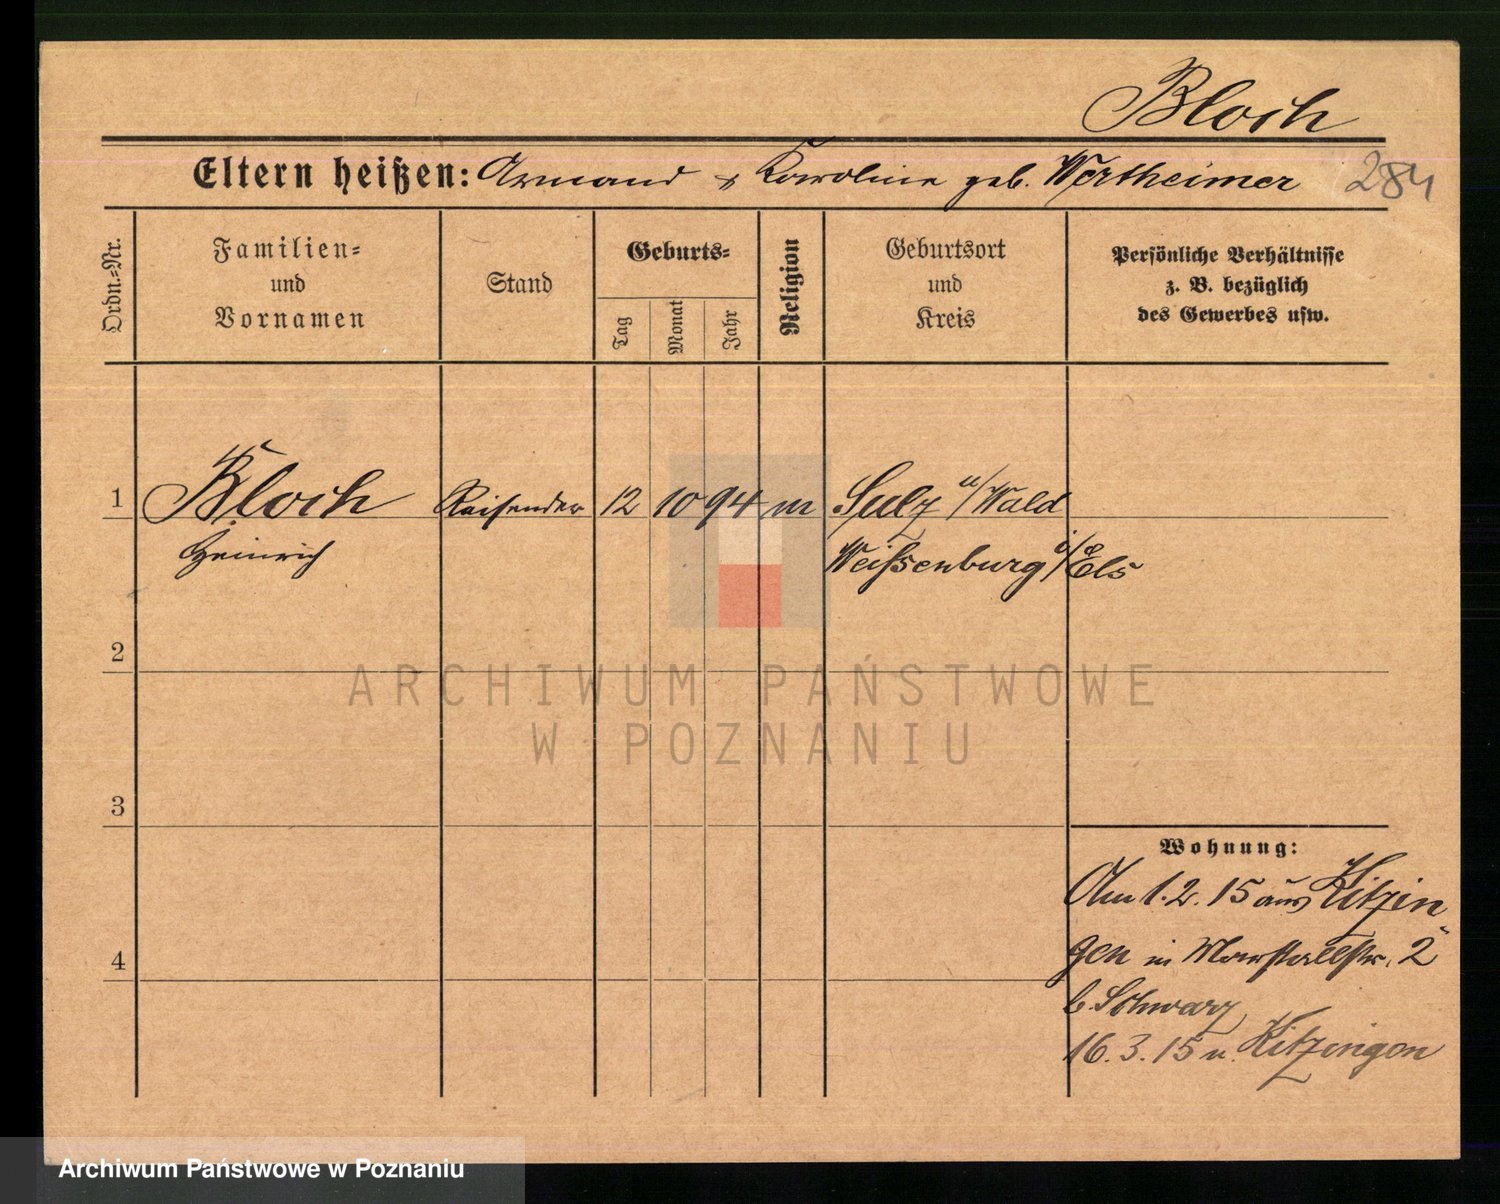 Bloch
Eltern heißen: Armand & Karoline geb. Wertheimer 284
Ordn.-Nr.
Familien-
und
Vornamen
Stand
Geburts-
Tag
Monat
Jahr
Religion
Geburtsort
und
Kreis
Persönliche Verhältnisse
z. B. bezüglich
des Gewerbes usw.
1 Bloch Reisender 12 10 94 m Sulz u/Wald
Heinrich Weißenburg i/Els
2
ARCHIWUM PAŃSTWOWE
W POZNANIU
3
Wohnung:
Am 1.2.15 aus Kitzin
gen in Marstallstr. 2
4
b. Schwarz
16.3.15 n. Kitzingen
Archiwum Państwowe w Poznaniu